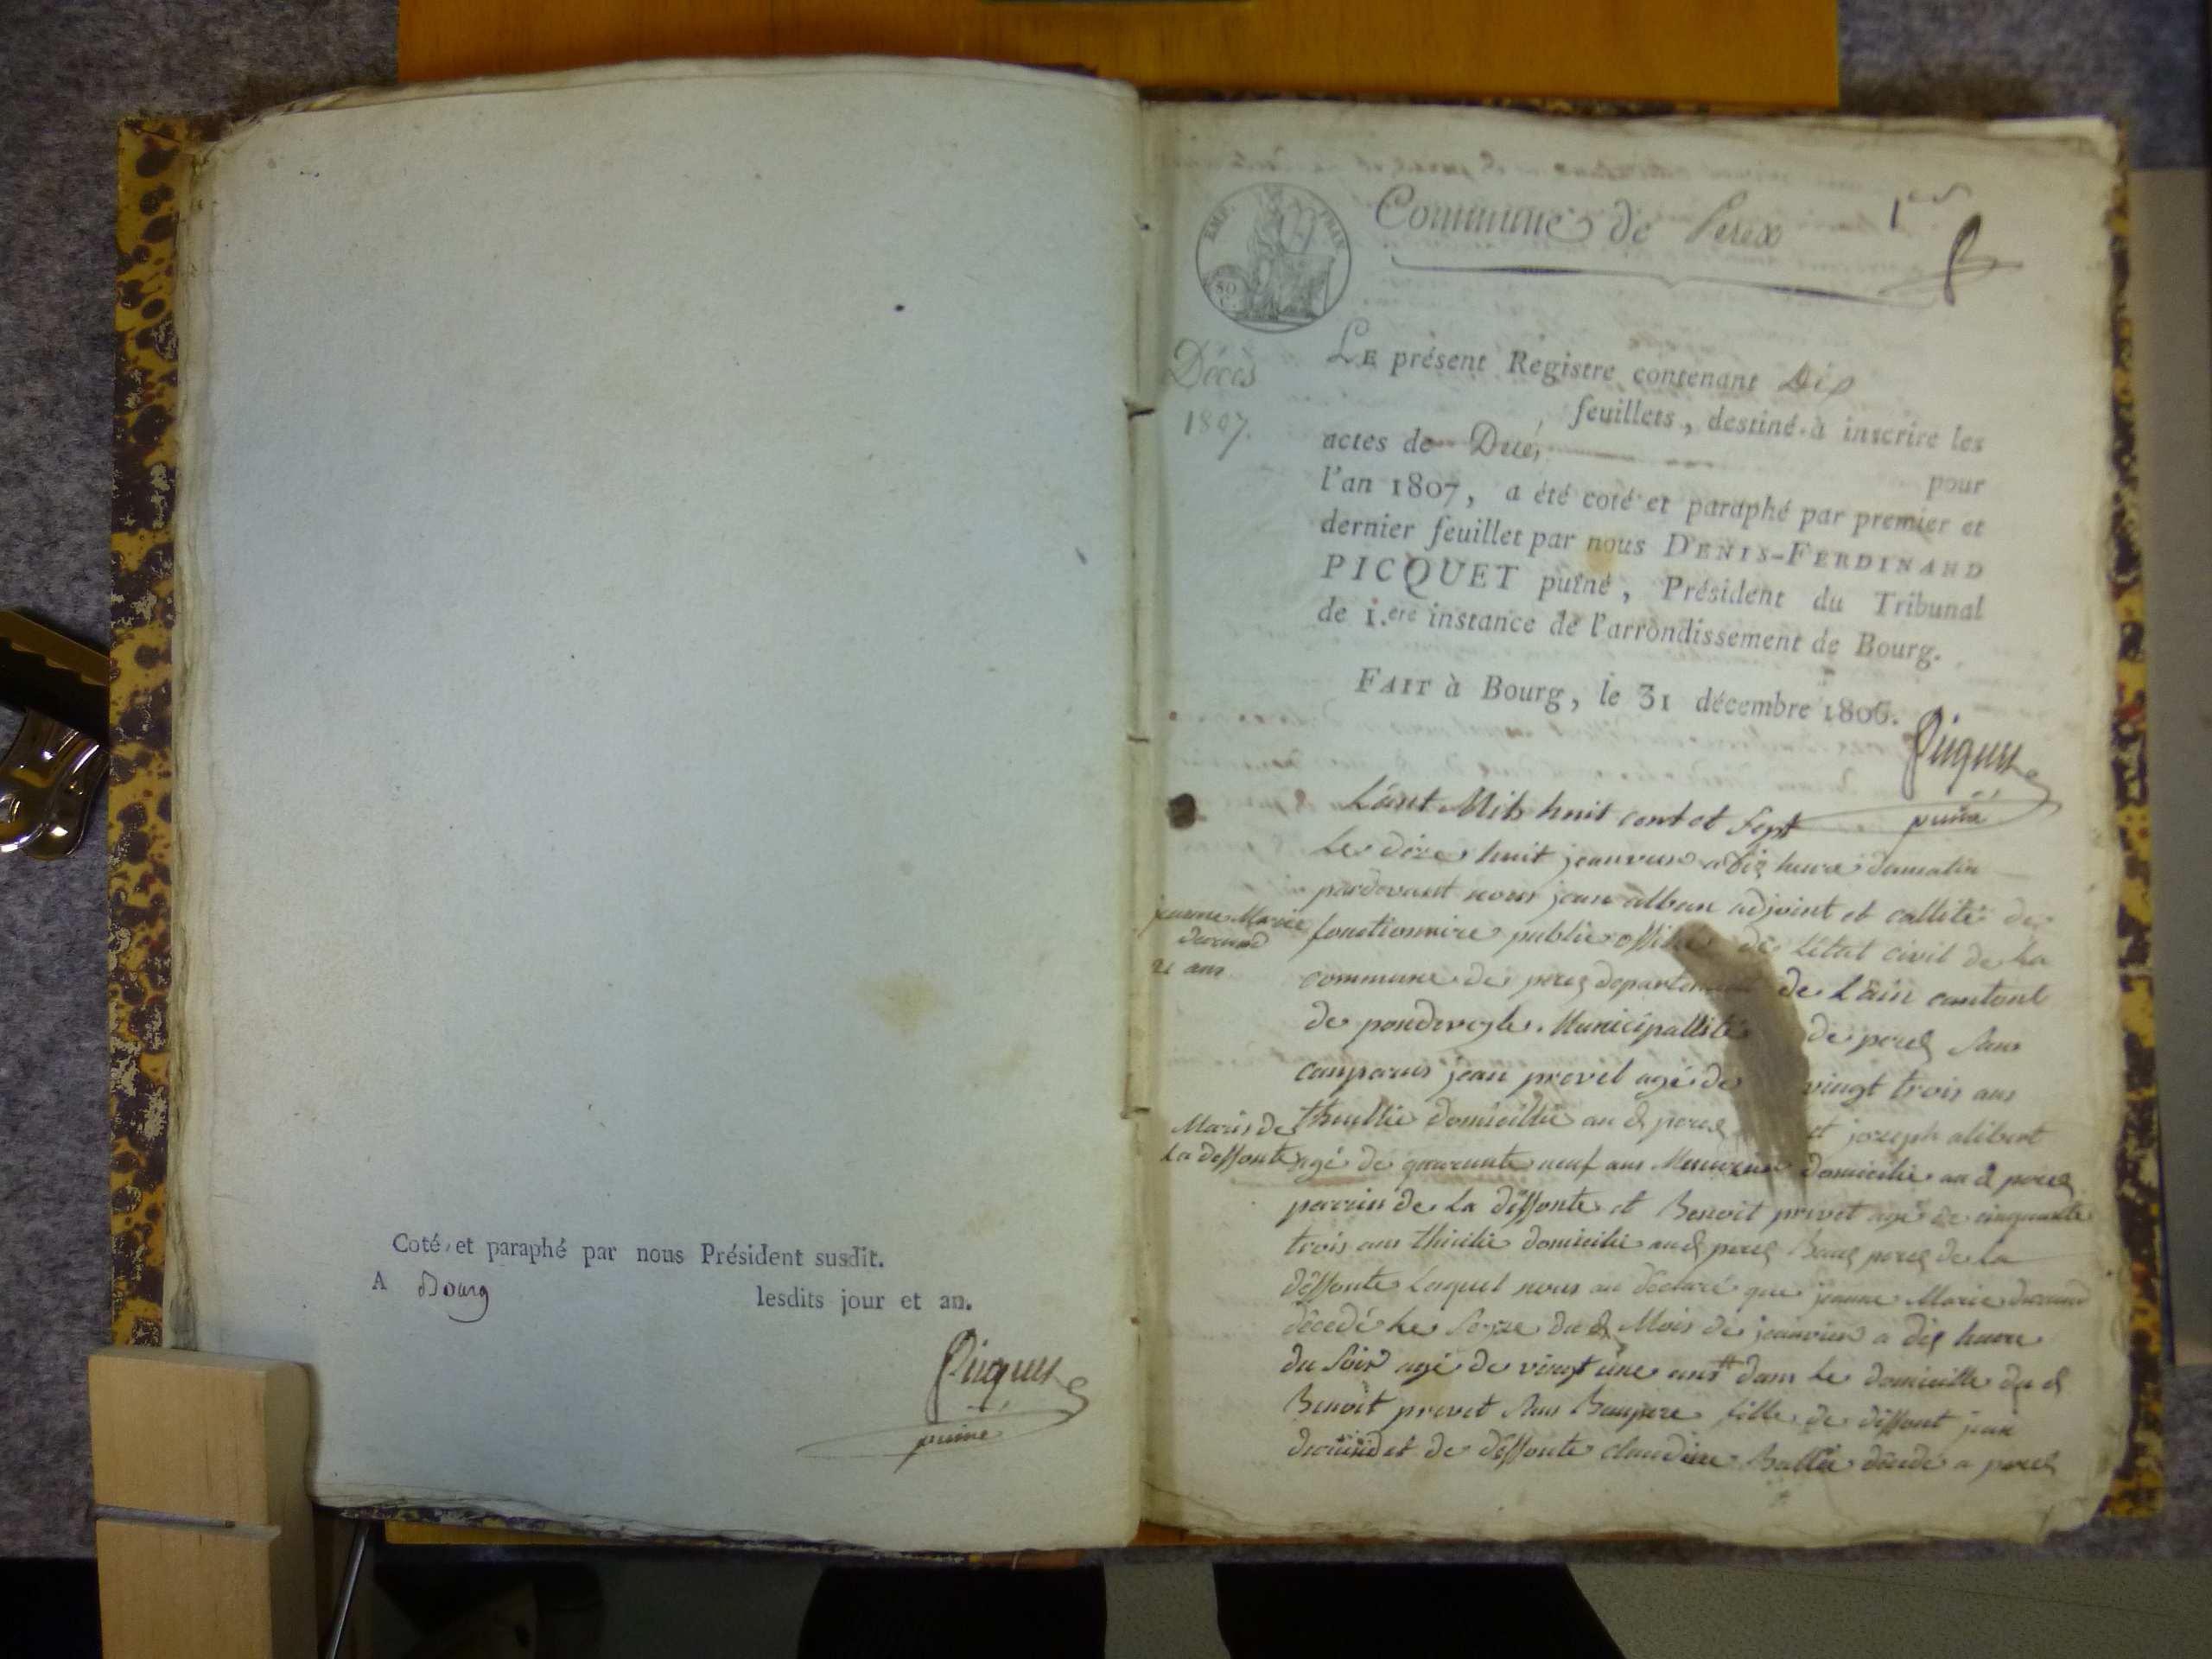 Coté et paraphé par nous Président susdit.
A Bourg lesdits jour et an.
Picquet
puiné
EMP. FRAN.
50
C.
Commune de Perex
1er
Décès
1807.
LE présent Registre contenant Dix
feuillets, destiné à inscrire les
actes de Décés pour
l'an 1807, a été coté et paraphé par premier et
dernier feuillet par nous DENIS-FERDINAND
PICQUET puîné, Président du Tribunal
de 1.ere instance de l'arrondissement de Bourg.
FAIT à Bourg, le 31 décembre 1806.
Picquet
puiné
L'ant Mils huit cent et sept
Le dixe huit jeanvier a dix heure dumatin
pardevant nous jean alban adjoint et callité de
jeanne Marie
21 ans
fonctionnaire public officier de l'état civil de la
commune de perex departement de L'ain cantont
de pondevesle Municipallité de perex sens
comparus jean prevet agé de vingt trois ans
Maris de
La deffonte
domicillié au d perex et joseph alibert
agé de quarante neuf ans domicilié au d perex
parrin de La deffonte et Benoit prevet agé de cinquante
trois ans domicilié au d perex Beau perex de la
deffonte Lequel nous au déclaré que jeanne Marie
décedé Le seize du d Mois de jeanvier a dix heure
du soir agé de vingt une ans dans Le domicille du d
Benoit prevet sens Beaupere fille de deffont jean
et de deffonte claudine décedé a perex